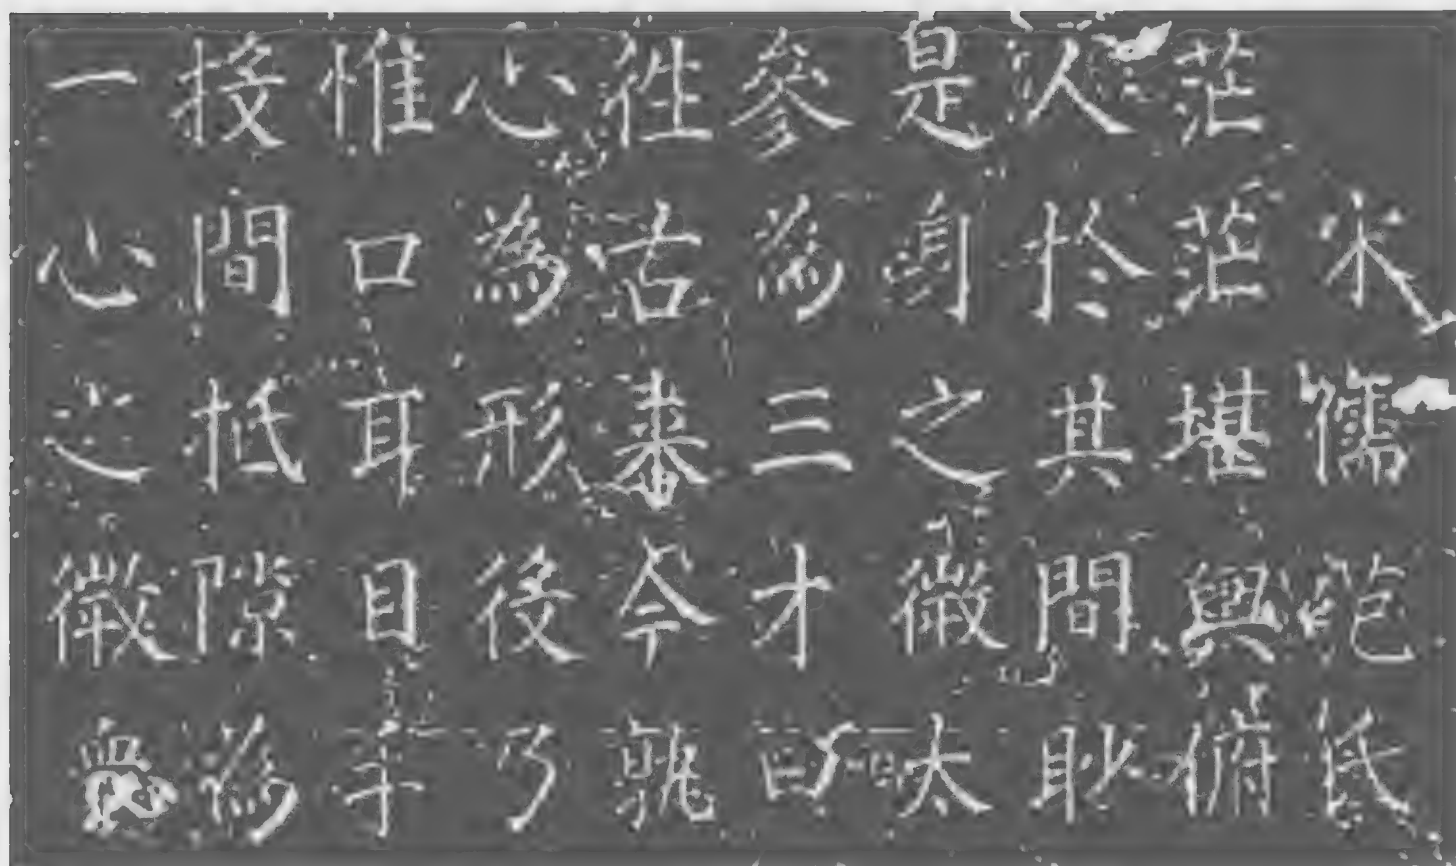 宋儒范氏
茫茫堪輿俯
人於其間眇
是身之微太
參為三才曰
往古來今孰
心為形役乃
惟口耳目手
投間抵隙為
一心之微眾